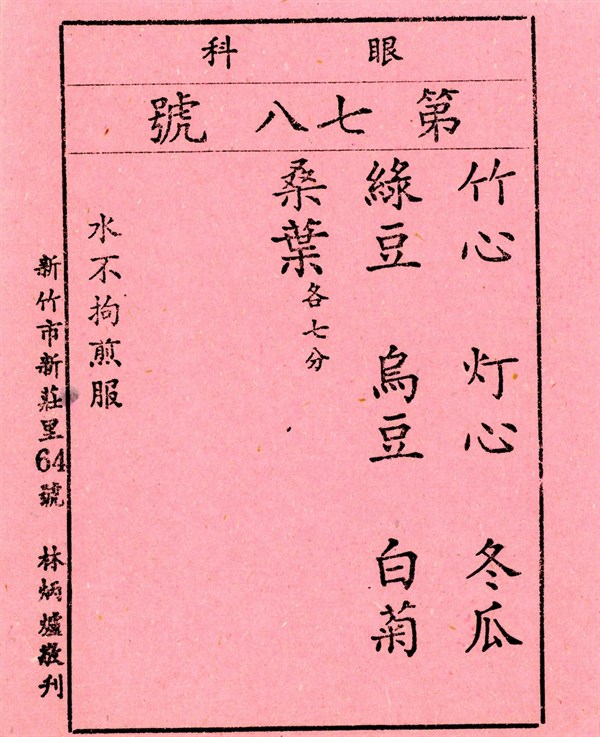 眼科
第七八號
竹心 灯心 冬瓜
綠豆 烏豆 白菊
桑葉各七分
水不拘煎服
新竹市新莊里64號 林炳爐敬刊